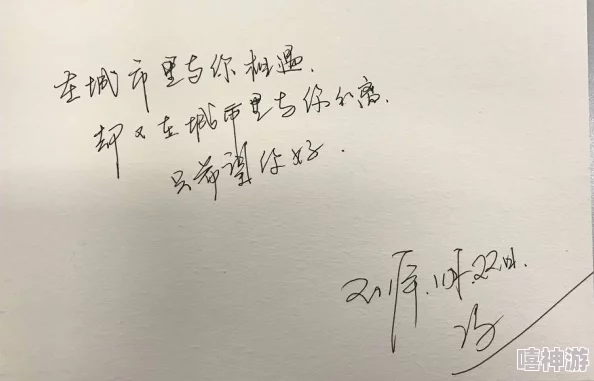 在城市里与你相遇.
却又在城市里与你分离.
只希望你好.
2011年.10月.22日.
嘻神游